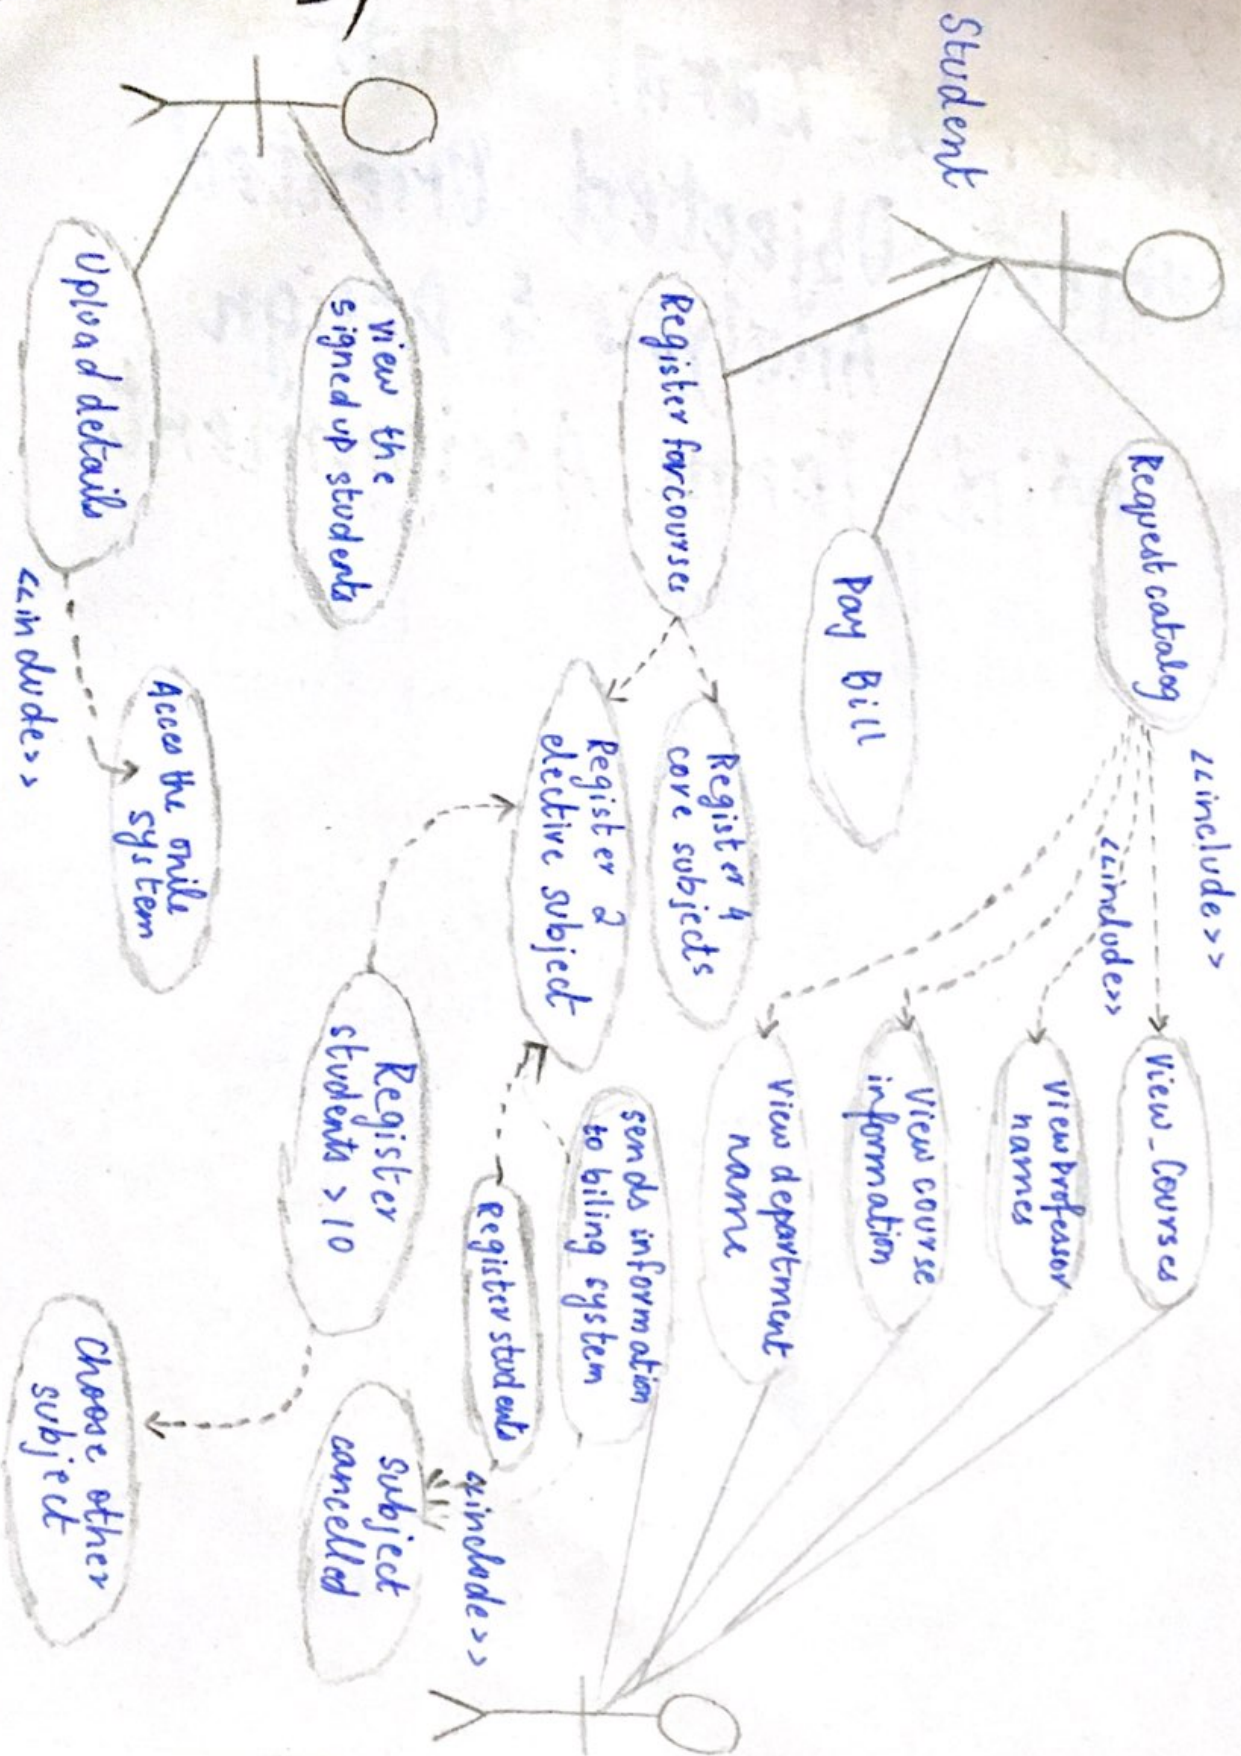 Student
Request catalog
<<include>>
<<include>>
View_Courses
View Professor
names
View course
information
View department
name
Pay Bill
Register for courses
Register 4
core subjects
Register 2
elective subject
sends information
to biling system
Register students
<<include>>
subject
cancelled
Register
students > 10
Choose other
subject
view the
signed up students
Upload details
<<include>>
Acces the onile
system